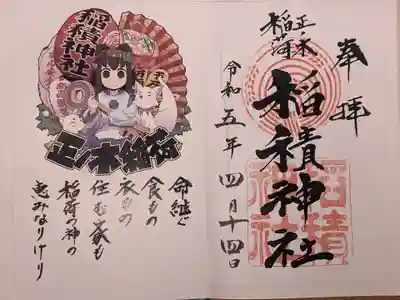 奉拝
正ノ木
稲荷
稲積神社
令和五年四月十四日
稲積
神社
稲積神社
正ノ木稲荷
命継ぐ
食もの
衣もの
住む家も
稲荷の神の
恵みなりけり